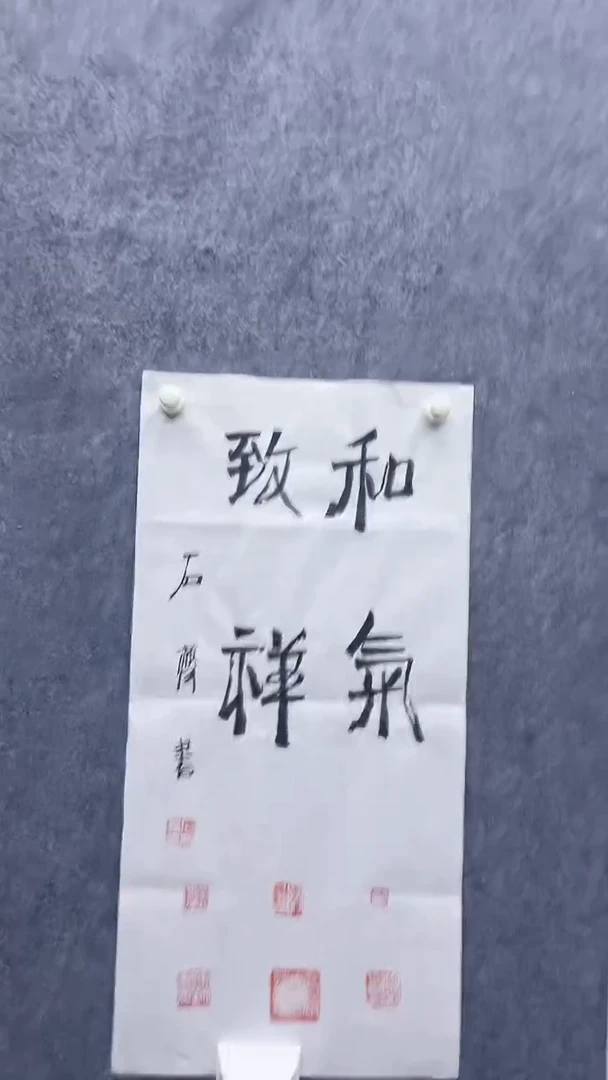 和氣
致祥
石齊書